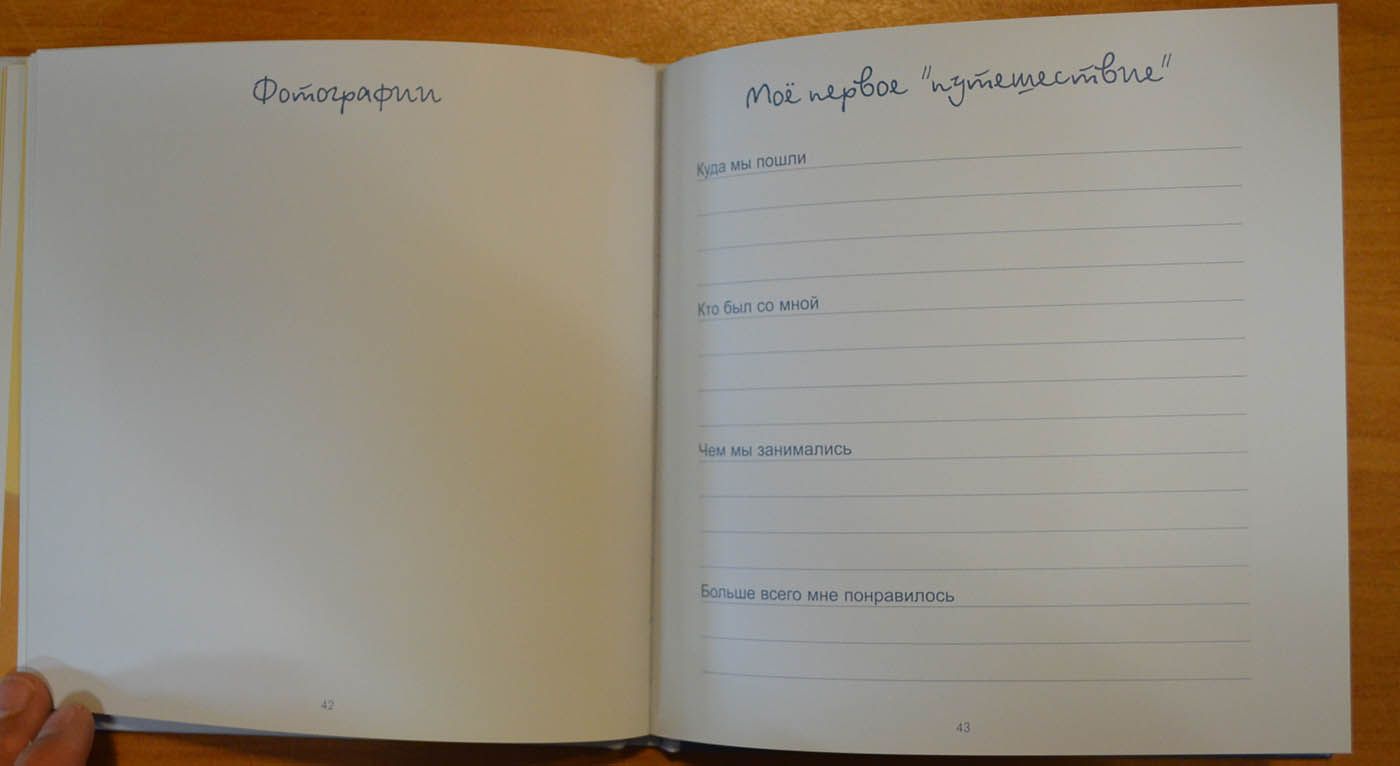 Фотографии
42
Моё первое "путешествие"
Куда мы пошли
Кто был со мной
Чем мы занимались
Больше всего мне понравилось
43